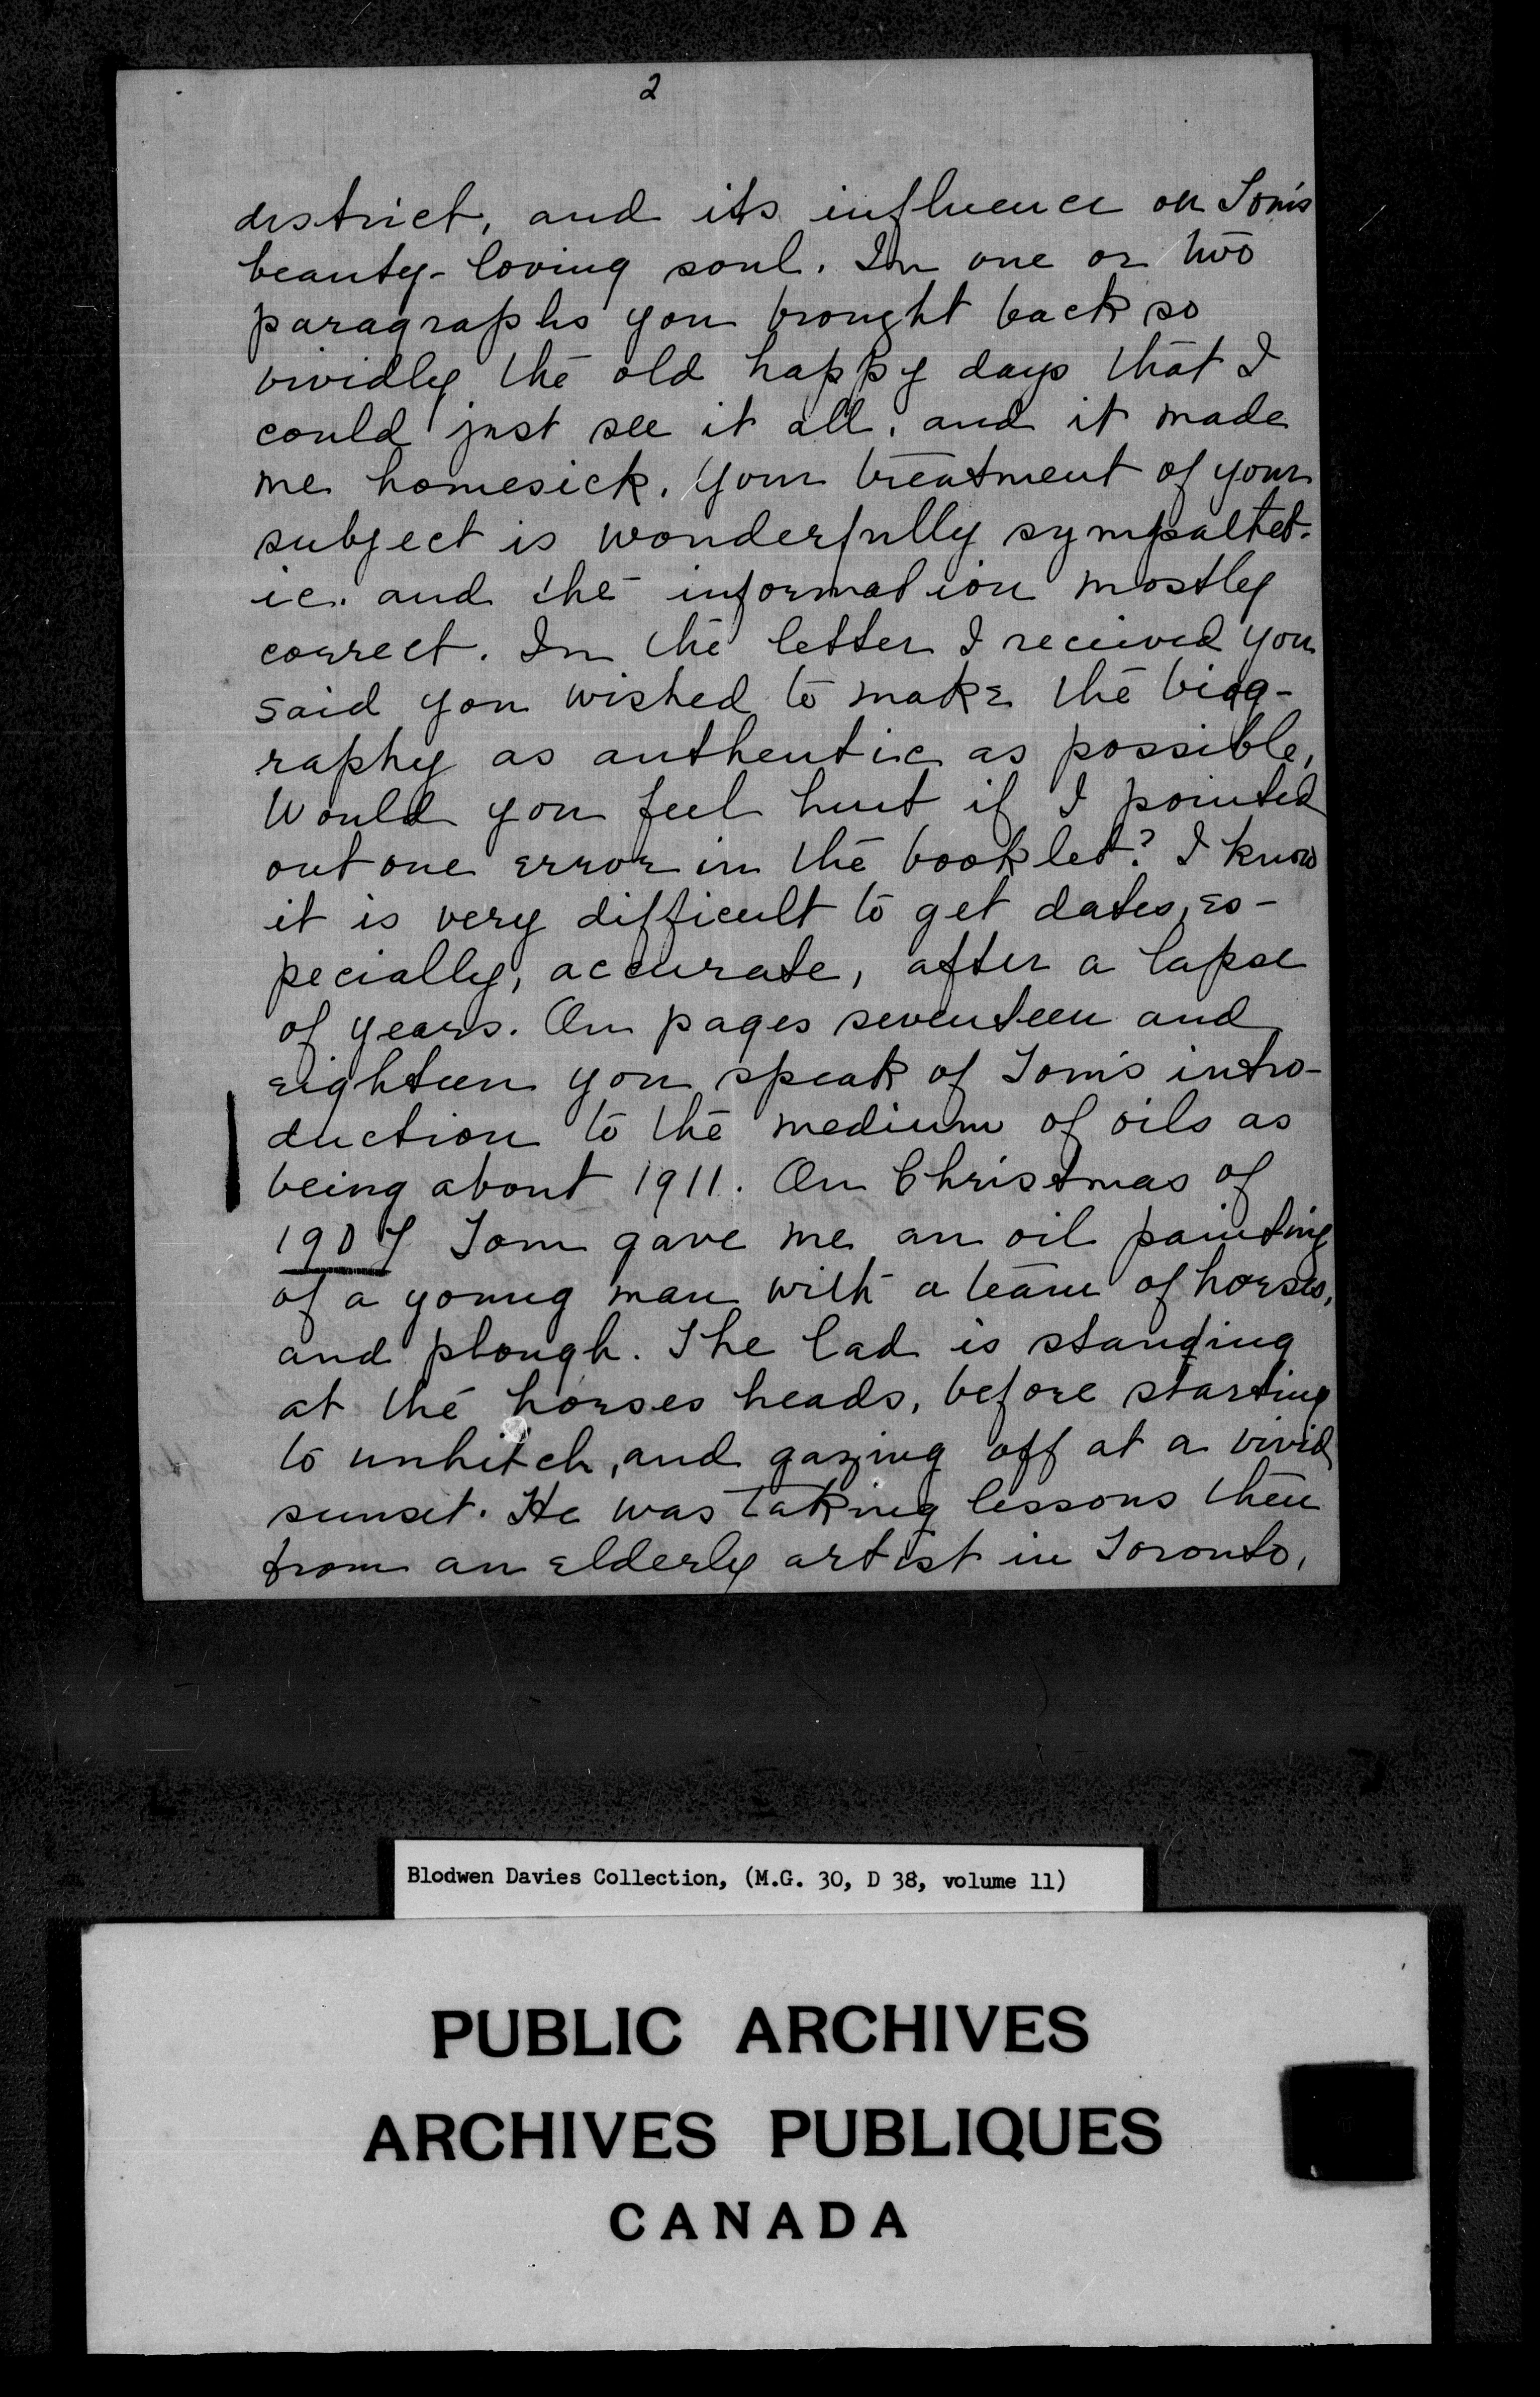 2
district, and its influence on Tom's
beauty-loving soul. In one or two
paragraphs you brought back so
vividly the old happy days that I
could just see it all, and it made
me homesick. Your treatment of your
subject is wonderfully sympathet-
ic. and the information mostly
correct. In the letter I received you
said you wished to make the biog-
raphy as authentic as possible,
Would you feel hurt if I pointed
out one error in the booklet? I know
it is very difficult to get dates, es-
pecially, accurate, after a lapse
of years. On pages seventeen and
eighteen you speak of Tom's intro-
duction to the medium of oils as
being about 1911. On Christmas of
1907 Tom gave me an oil painting
of a young man with a team of horses,
and plough. The lad is standing
at the horses heads, before starting
to unhitch, and gazing off at a vivid
sunset. He was taking lessons then
from an elderly artist in Toronto,
Blodwen Davies Collection, (M.G. 30, D 38, volume 11)
PUBLIC ARCHIVES
ARCHIVES PUBLIQUES
CANADA